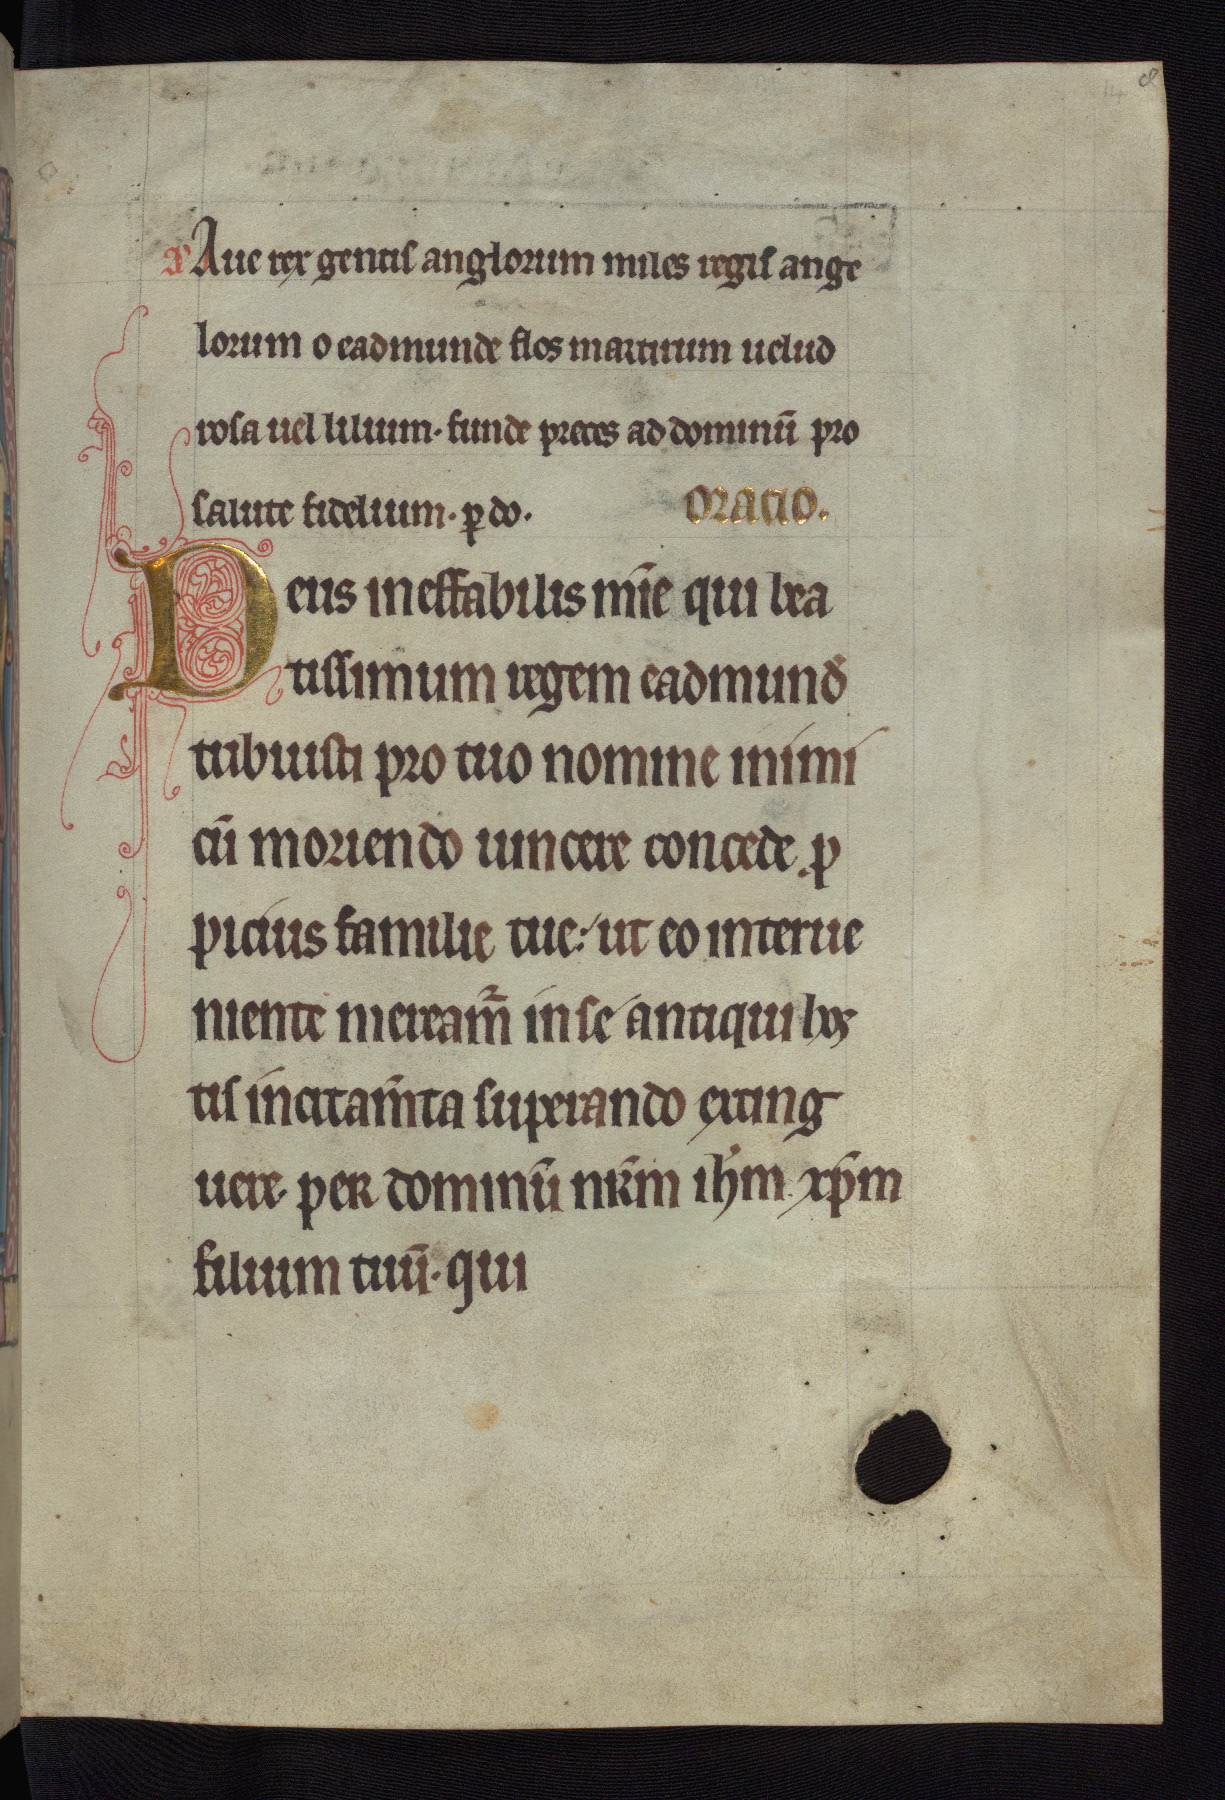 Aue rex gentis anglorum miles regis ange
lorum o eadmunde flos martirum uelud
rosa uel lilium. funde preces ad dominū pro
salute fidelium. ꝑ do. ORACIO.
Deus ineffabilis mīe qui bea
tissimum regem eadmund̄
tribuisti pro tuo nomine inimi
cū moriendo uincere concede. ꝓ
picius familie tue: ut eo interue
niente meream̄ in se antiqui hos
tis incitam̄ta superando exting
uere. per dominū nr̄m ih̄m xp̄m
filium tuū. qui